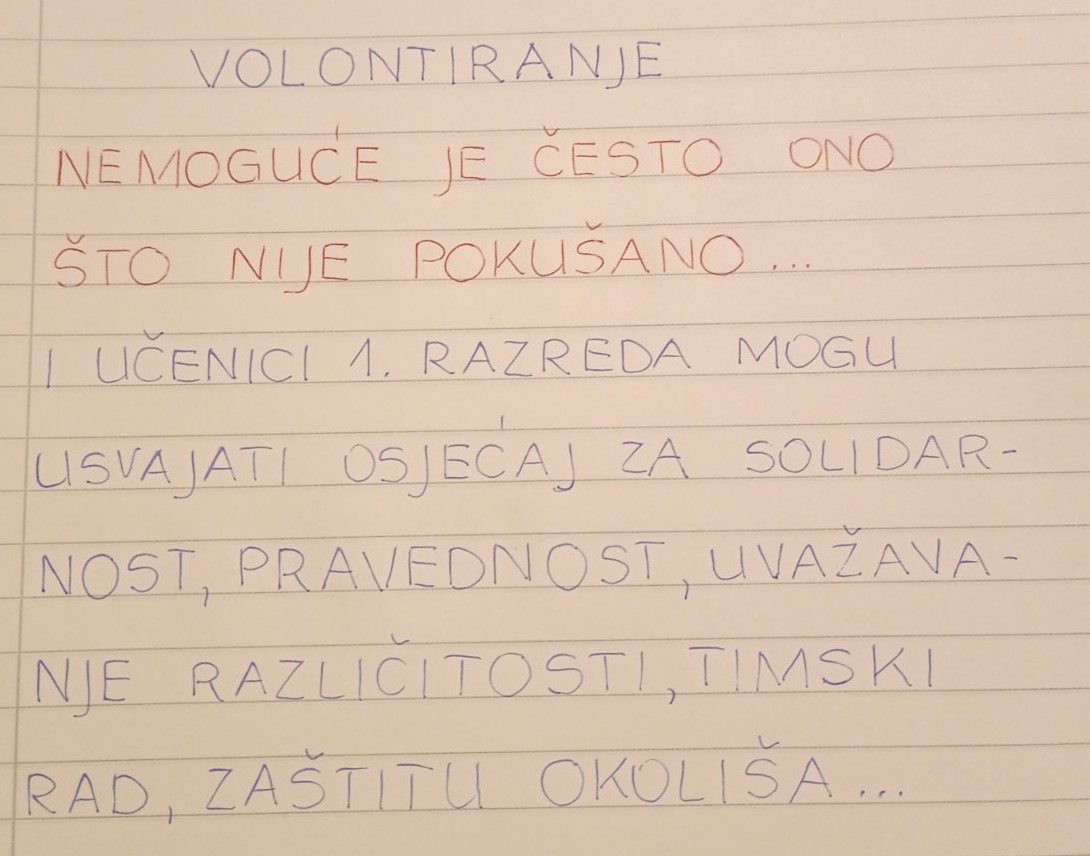 VOLONTIRANJE
NEMOGUĆE JE ČESTO ONO
ŠTO NIJE POKUŠANO...
I UČENICI 1. RAZREDA MOGU
USVAJATI OSJEĆAJ ZA SOLIDAR-
NOST, PRAVEDNOST, UVAŽAVA-
NJE RAZLIČITOSTI, TIMSKI
RAD, ZAŠTITU OKOLIŠA...